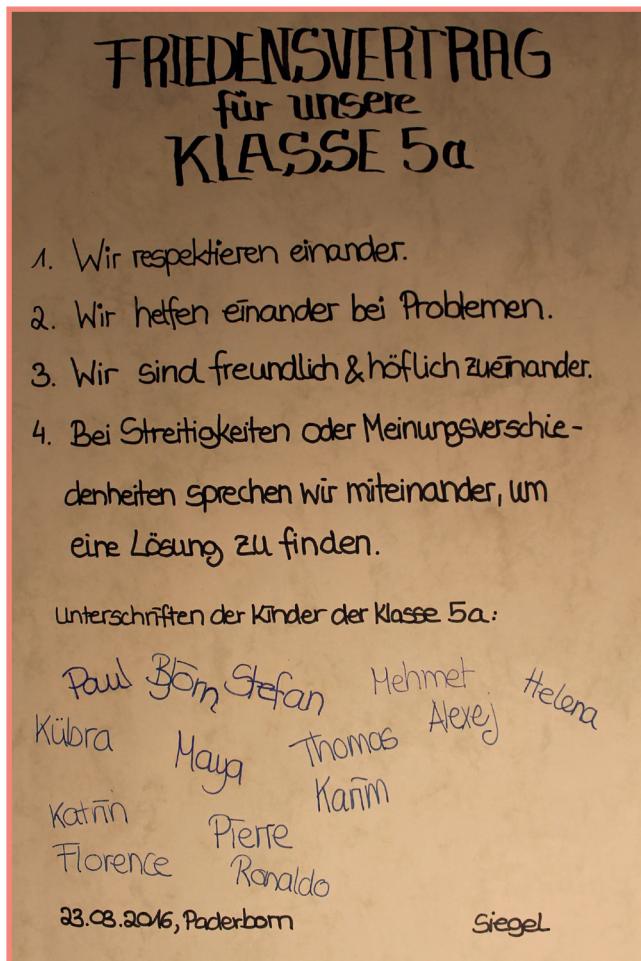 FRIEDENSVERTRAG
für unsere
KLASSE 5a
1. Wir respektieren einander.
2. Wir helfen einander bei Problemen.
3. Wir sind freundlich & höflich zueinander.
4. Bei Streitigkeiten oder Meinungsverschie-
denheiten sprechen wir miteinander, um
eine Lösung zu finden.
Unterschriften der Kinder der Klasse 5a:
Paul Björn Stefan Mehmet Helena
Kübra Maya Thomas Alexej
Karim
Katrin Pierre
Florence Ronaldo
23.08.2016, Paderborn Siegel